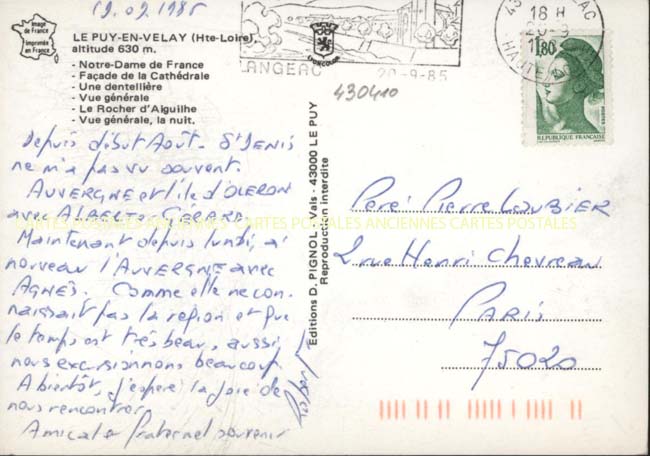 19.09.1985
Image
de France
Imprimée
en France
LE PUY-EN-VELAY (Hte-Loire)
altitude 630 m.
- Notre-Dame de France
- Façade de la Cathédrale
- Une dentellière
- Vue générale
- Le Rocher d'Aiguilhe
- Vue générale, la nuit.
Depuis début Août - St DENIS
ne m'a pas vu souvent.
AUVERGNE et l'île d'OLERON
avec ALBERT GERARD
Maintenant depuis lundi, à
nouveau l'AUVERGNE avec
AGNÈS. Comme elle ne con
naissait pas la région et que
le temps est très beau, aussi,
nous excursionnons beaucoup
A bientôt, j'espère la joie de
nous rencontrer
Amical et fraternel souvenir
Robert
Editions D. PIGNOL - Vals - 43000 LE PUY
Reproduction interdite
LANGEAC
20-9-85
430410
43
AC
18 H
20-9
HAUTE
1,80
REPUBLIQUE FRANÇAISE
POSTES
Père Pierre LOUBIER
2 rue Henri Chevreau
PARIS
75020
CARTES POSTALES ANCIENNES CARTES POSTALES ANCIENNES CARTES POSTALES